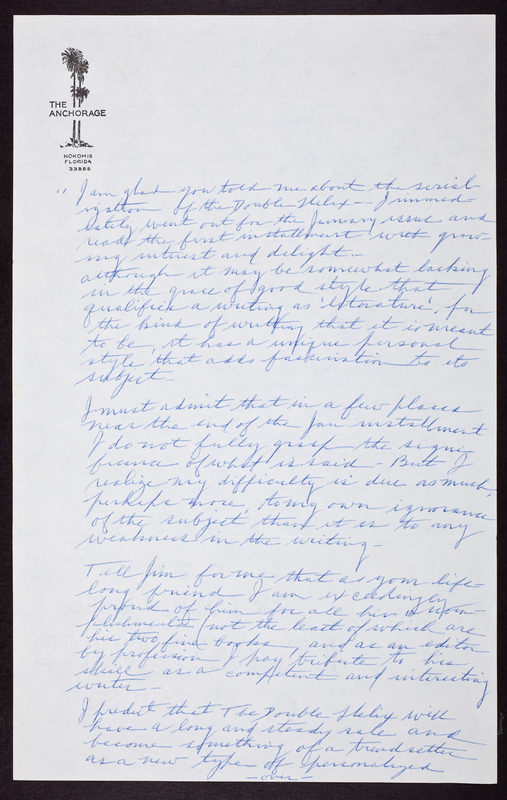 THE
ANCHORAGE
NOKOMIS
FLORIDA
33555
"I am glad you told me about the serial-
ization of the Double Helix - I immed-
iately went out for the January issue and
read the first installment with grow-
ing interest and delight -
although it may be somewhat lacking
in the grace of good style that
qualifies a writing as 'literature', for
the kind of writing that it is meant
to be, it has a unique personal
style that adds fascination to its
subject -
I must admit that in a few places
near the end of the Jan installment
I do not fully grasp the signi-
ficance of what is said - But I
realize my difficulty is due as much,
perhaps more, to my own ignorance
of the subject than it is to any
weakness in the writing -
Tell Jim for me that as your life-
long friend I am exceedingly
proud of him for all his accom-
plishments (not the least of which are
his two fine books, and as an editor
by profession I pay tribute to his
skill as a competent and interesting
writer -
I predict that The Double Helix will
have a long and steady sale and
become something of a trend setter
as a new type of personalized
-over-